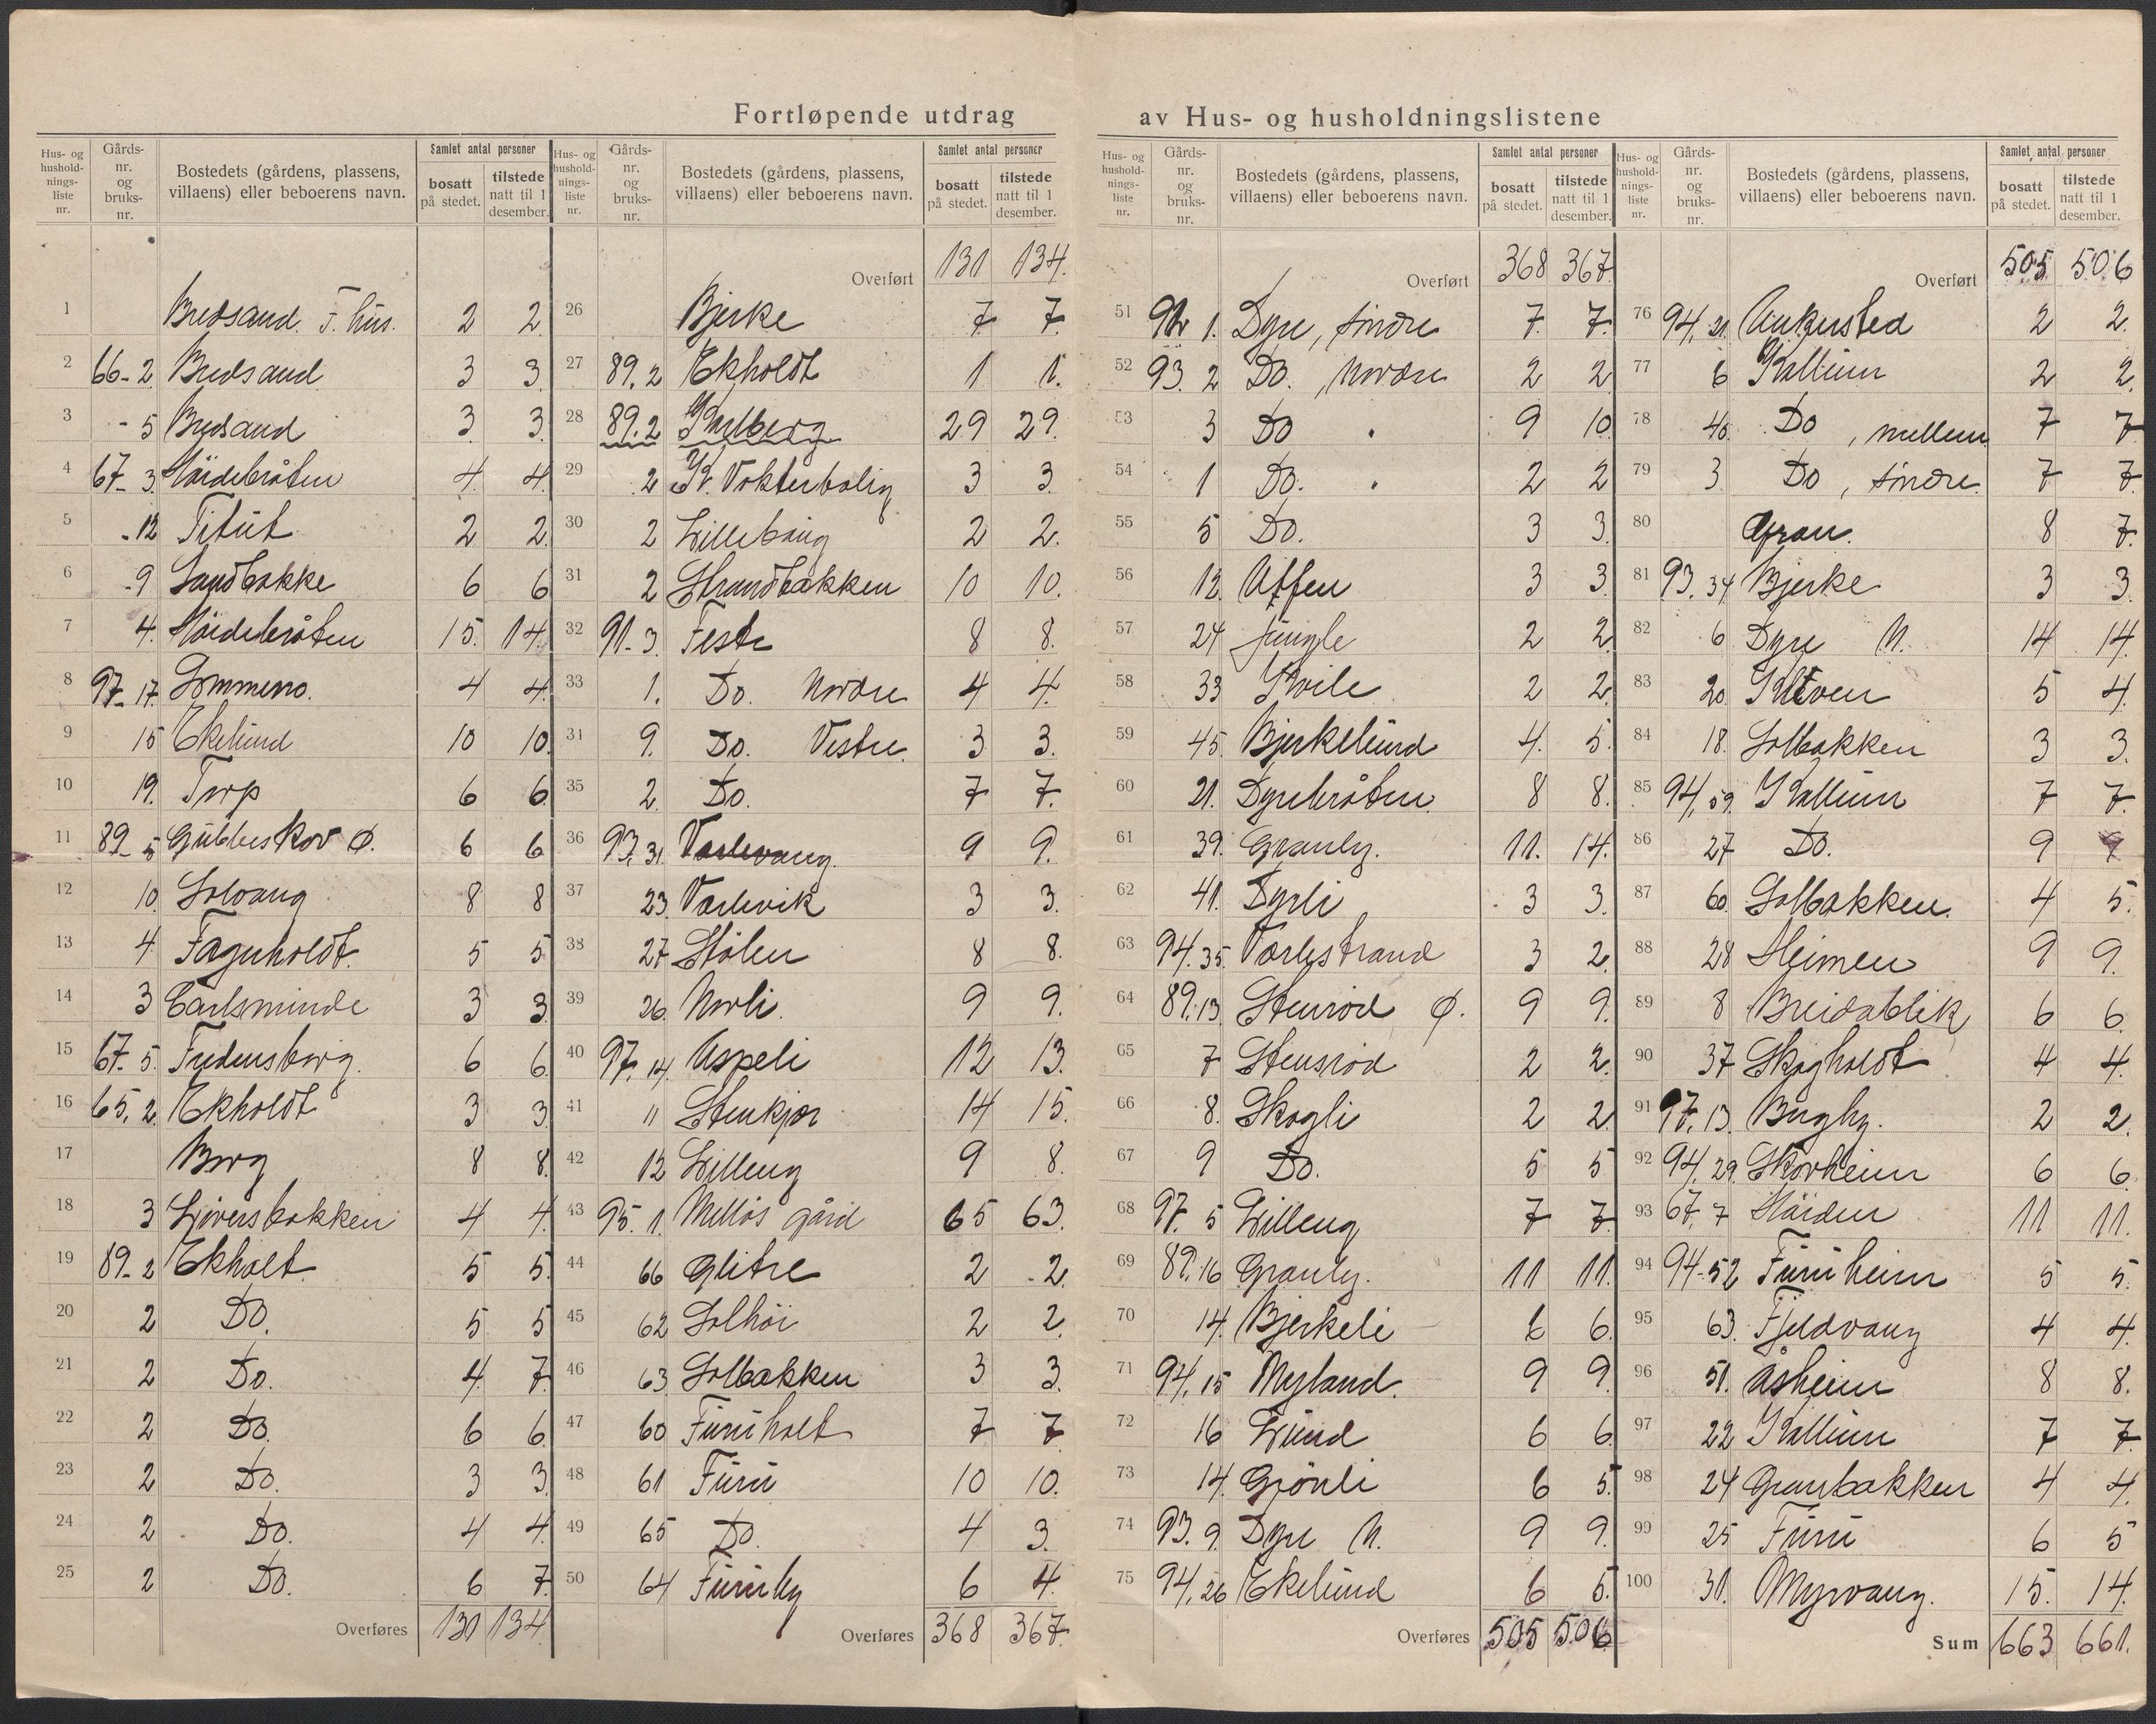 Fortløpende utdrag av Hus- og husholdningslistene
Hus- og husholdnings- liste nr. Gårds- nr. og bruks- nr. Bostedets (gårdens, plassens, villaens) eller beboerens navn. Samlet antal personer bosatt på stedet. tilstede natt til 1 desember.
1 Bredsand F. hus. 2 2
2 66-2 Bredsand 3 3
3 -5 Bredsand 3 3
4 67-3 Höidebråten 4 4
5 -12 Titut 2 2
6 -9 Sandbakke 6 6
7 4 Höidebråten 15 14
8 97-17 Lommero 4 4
9 15 Ekelund 10 10
10 19 Torp 6 6
11 89-5 Gubbeskov Ø. 6 6
12 10 Solvang 8 8
13 4 Fagerholdt 5 5
14 3 Carlsminde 3 3
15 67-5 Fredensborg 6 6
16 65,2 Ekholdt 3 3
17 Borg 8 8
18 3 Liversbakken 4 4
19 89-2 Ekholt 5 5
20 2 Do. 5 5
21 2 Do. 4 7
22 2 Do. 6 6
23 2 Do. 3 3
24 2 Do. 4 4
25 2 Do. 6 7
Overføres 130 134
Hus- og husholdnings- liste nr. Gårds- nr. og bruks- nr. Bostedets (gårdens, plassens, villaens) eller beboerens navn. Samlet antal personer bosatt på stedet. tilstede natt til 1 desember.
Overført 131 134
26 Bjerke 7 7
27 89,2 Ekholdt 1 1
28 89.2 Karlberg 29 29
29 2 K. Vokterbolig 3 3
30 2 Lillehaug 2 2
31 2 Strandbakken 10 10
32 91-3 Feste 8 8
33 1. Do. Nordre 4 4
34 9. Do. Vestre 3 3
35 2. Do. 7 7
36 93,31 Varlevang 9 9
37 23 Varlevik 3 3
38 27 Stölen 8 8
39 26 Norli 9 9
40 97,14 Aspeli 12 13
41 11 Stenkjær 14 15
42 12 Lilleng 9 8
43 95.1 Mellös gård 65 63
44 66 Glitre 2 2
45 62 Solhöi 2 2
46 63 Solbakken 3 3
47 60 Furuholt 7 7
48 61 Furu 10 10
49 65 Do. 4 3
50 64 Furuly 6 4
Overføres 368 367
Hus- og husholdnings- liste nr. Gårds- nr. og bruks- nr. Bostedets (gårdens, plassens, villaens) eller beboerens navn. Samlet antal personer bosatt på stedet. tilstede natt til 1 desember.
Overført 368 367
51 92 1. Dyre, söndre 7 7
52 93.2 Do. , Nordre 2 2
53 3 Do 9 10
54 1 Do. 2 2
55 5 Do. 3 3
56 12 Alfen 3 3
57 24 Jungle 2 2
58 33 Hvile 2 2
59 45 Bjerkelund 4 5
60 21. Dyrebråten 8 8
61 39. Granly 11 14
62 41. Dyrli 3 3
63 94.35 Varlestrand 3 2
64 89.13 Stensrød Ø. 9 9
65 7 Stensröd 2 2
66 8. Skogli 2 2
67 9 Do. 5 5
68 97.5 Lilleng 7 7
69 89.16 Granly. 11 11
70 14. Bjerkeli 6 6
71 94,15 Myland 9 9
72 16 Lund 6 6
73 14 Grönli 6 5
74 93.9 Dyre N. 9 9
75 94,26 Ekelund 6 5
Overføres 505 506
Hus- og husholdnings- liste nr. Gårds- nr. og bruks- nr. Bostedets (gårdens, plassens, villaens) eller beboerens navn. Samlet antal personer bosatt på stedet. tilstede natt til 1 desember.
Overført 505 506
76 94,21 Ankersted 2 2
77 6 Kallum 2 2
78 40 Do , mellem 7 7
79 3 Do , söndre 7 7
80 Gran 8 7
81 93,34 Bjerke 3 3
82 6 Dyre N. 14 14
83 20 Kleven 5 4
84 18. Solbakken 3 3
85 94,59 Kallum 7 7
86 27 Do. 9 9
87 60 Solbakken 4 5
88 28 Heimen 9 9
89 8 Breidablik 6 6
90 37 Skogholdt 4 4
91 97,13 Bergby 2 2
92 94,29 Skovheim 6 6
93 67,7 Höiden 11 11
94 94-52 Furuheim 5 5
95 63. Fjeldvang 4 4
96 51. Åsheim 8 8
97 22 Kallum 7 7
98 24 Granbakken 4 4
99 25 Furu 6 5
100 31. Myrvang. 15 14
Sum 663 661